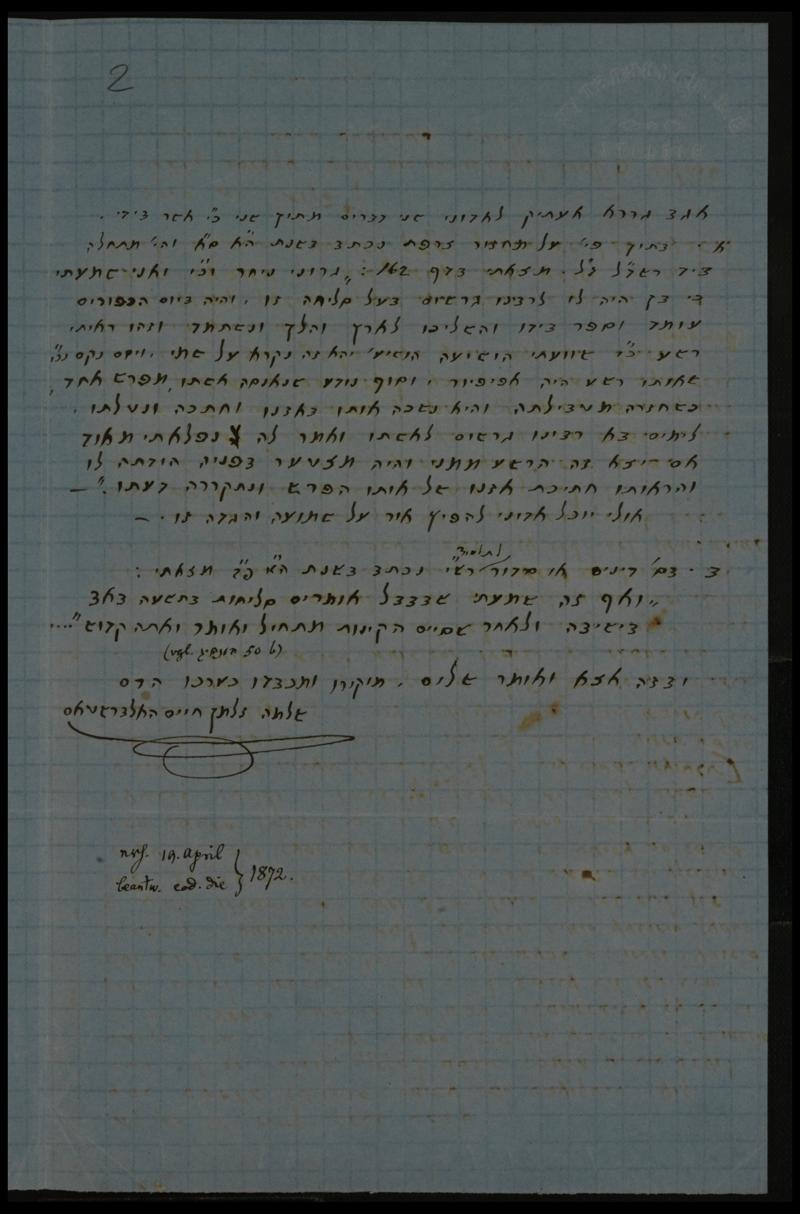 2
אגב גררא אעתיק לאדוני שני דברים מתוך שני כ״י אשר בידי.
א. בתוך פי׳ על מחזור צרפת נכתב בשנת ה״א מ״א והי׳ מתחלה
ביד רשד״ל ז״ל. מצאתי בדף 162: „גרוני ניחר וכ״י ואני שמעתי
כי בן היה לו לרבינו גרשום בעל סליחה זו, והיה ביום הכפורים
עומד וספר בידו והשליכו לארץ והלך ונשתמד וזהו ראיתי
רשע כ״ו שוועתי הושיעה הושיע׳ יהא זה נקרא על שמי.
שאותו רשע היה אפיפיור, וסוף נודע שנאנסה אשתו מפרש אחד,
כשחזרה מטבילתה והיא נשכה אותו באזנו וחתכה ונטלתו.
לימים בא רבינו גרשום לאשתו ואמר לה נפלאתי מאוד
אם יצא זה הרשע ממני והיה מצטער בפניה הודתה לו
והראותו חתיכת אזנו של אותו הפרש ונתקררה דעתו.״ —
אולי יוכל אדוני להפיץ אור על שמועה והגדה זו. —
ב. בס׳ דינים או סידור רש״י נכתב בשנת ה״א פ״ג מצאתי:
„ואף זה שמעתי שבבבל אומרים סליחות בתשעה באב
בישיבה ולאחר שסיים הקינות מתחיל ואומר ואתה קדוש״....
(vgl. המנהיג 50 b)
ובזה אצא ואומר שלום, מוקירו ומכבדו כערכו הרם
שלמה זלמן חיים האלברשטאם
1872.
19. April
beantw. eod. die